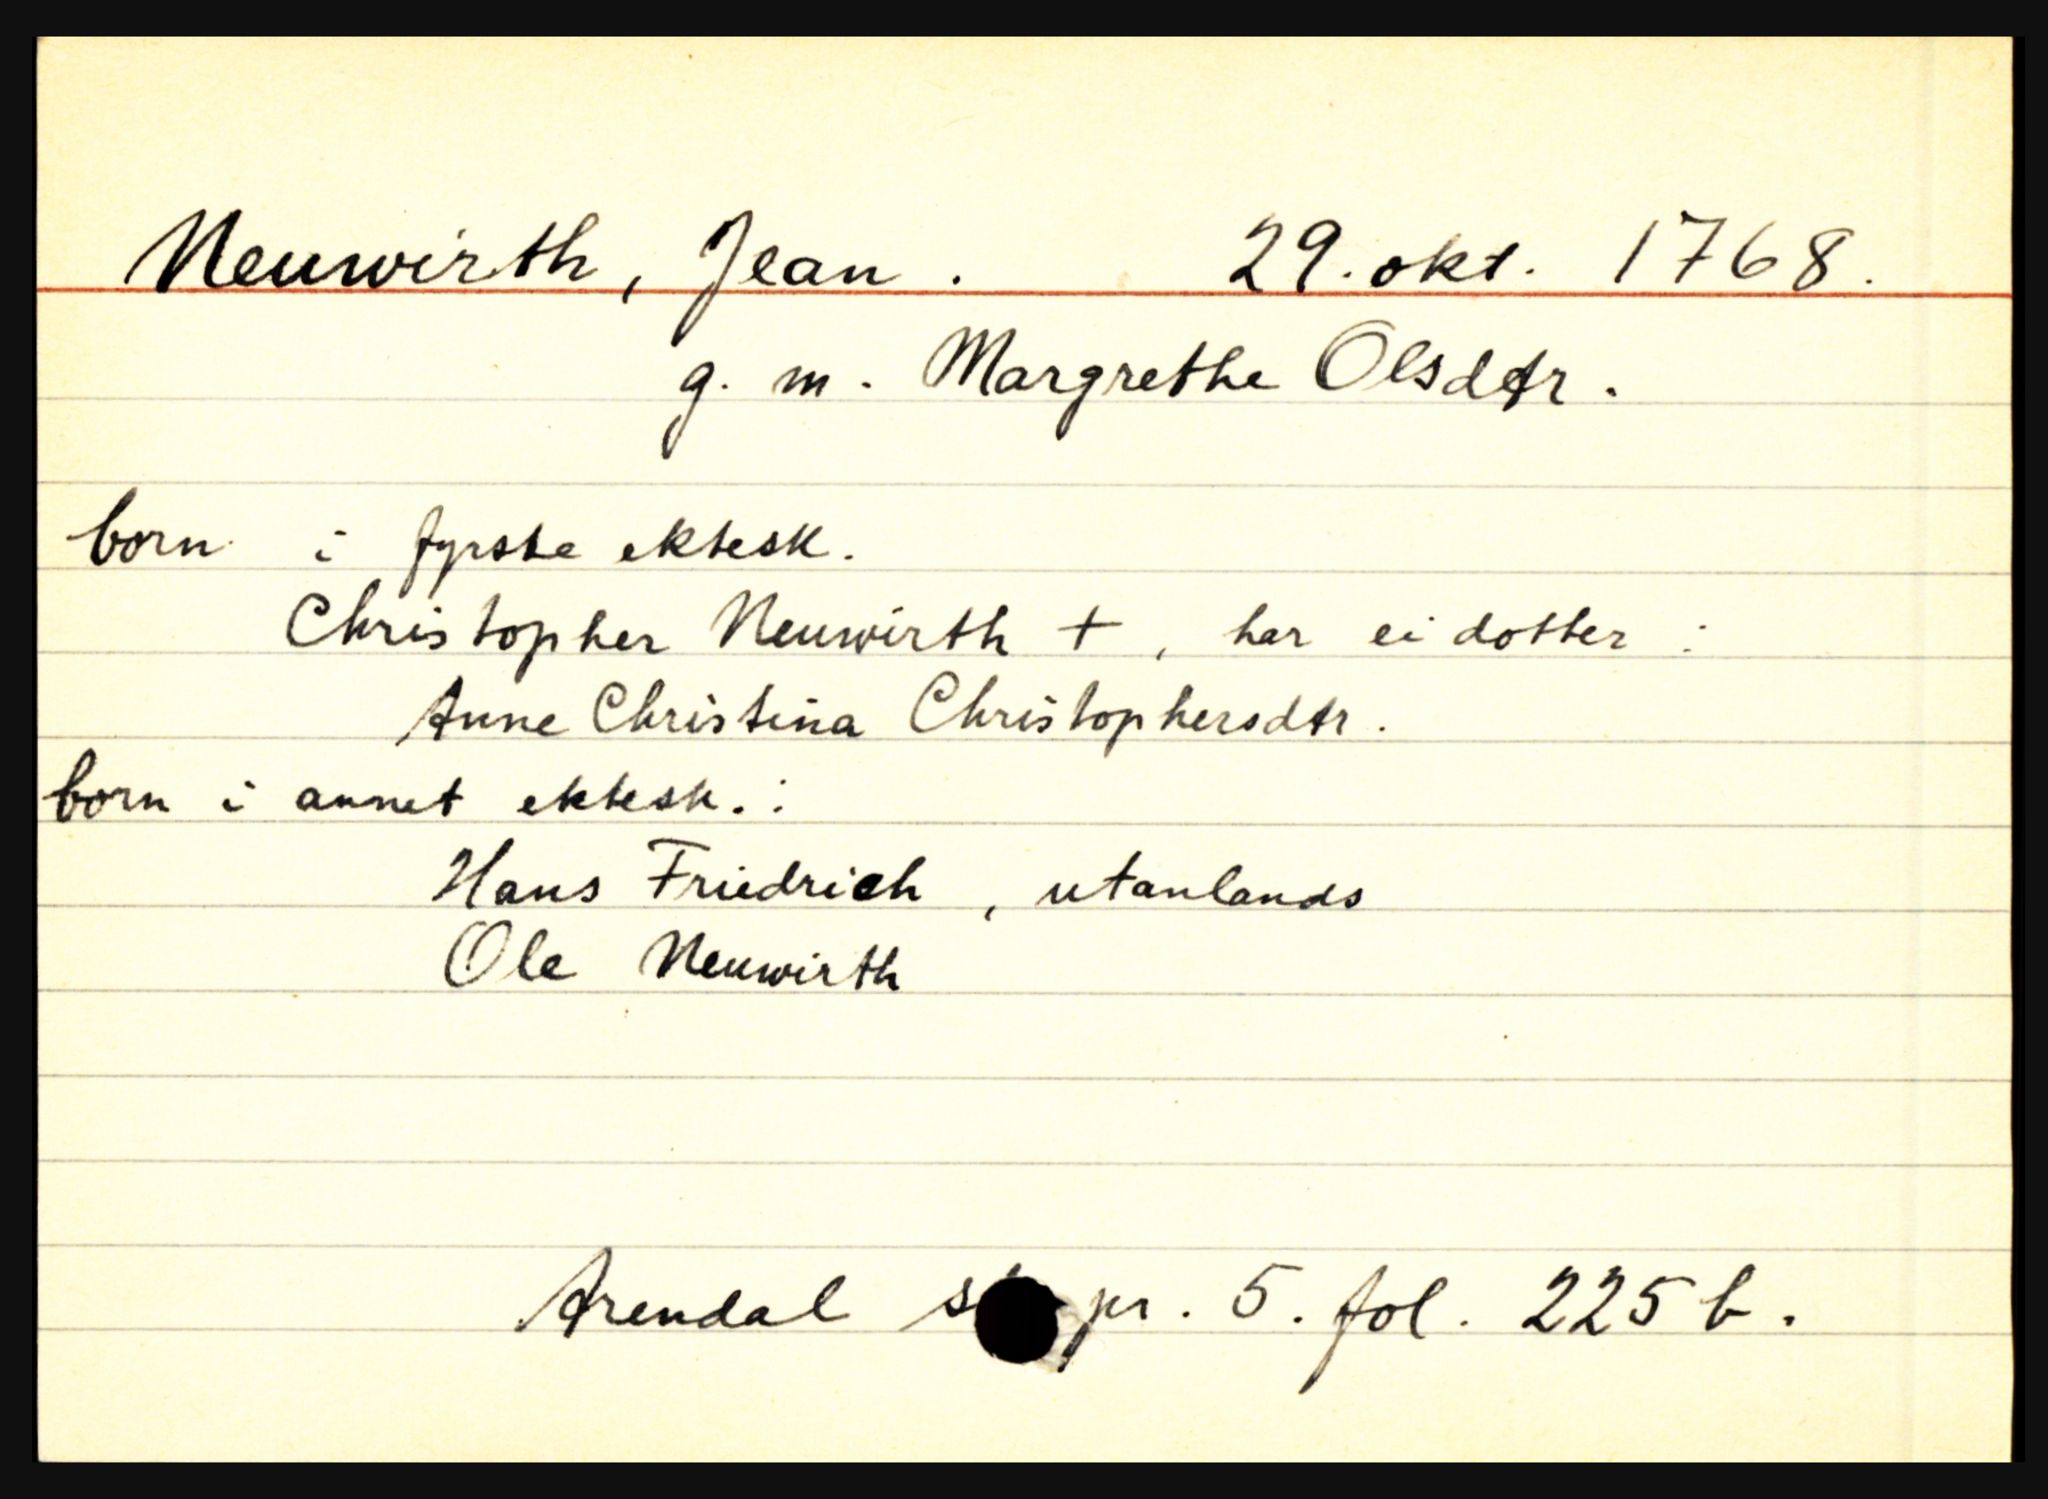 Neuwirth, Jean. 29. okt. 1768.
g. m. Margrethe Olsdtr.
born i fyrste ektesk.
Christopher Neuwirth +, har ei dotter :
Anne Christina Christophersdtr.
born i annet ektesk. :
Hans Friedrich, utanlands
Ole Neuwirth
Arendal pr. 5. fol. 225 b.